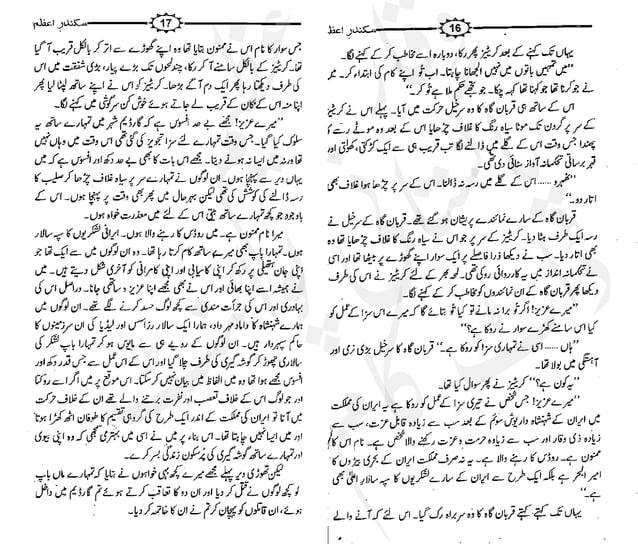 16 سکندر اعظم
یہاں تک کہنے کے بعد کریٹیز پھر رکا، دوبارہ اسے مخاطب کر کے کہنے لگا۔
”میں تمہیں باتوں میں نہیں الجھانا چاہتا۔ اب تُو اپنے کام کی ابتداء کر۔ میں
نے جو کہنا تھا کہہ چکا۔ جو تجھے حکم ملا ہے تُو کر۔“
اس کے ساتھ ہی قربان گاہ کا وہ سرخیل حرکت میں آیا۔ پہلے اس نے کریٹیز
کے سر پر گردن تک موٹا سیاہ رنگ کا غلاف چڑھایا اس کے بعد وہ موٹے رسے کا
پھندا جس وقت اس کے گلے میں ڈالنے لگا تب قریب ہی سے ایک کڑکتی، کھولتی اور
قہر برساتی تحکمانہ آواز سنائی دی تھی۔
”ٹھہرو ...... اس کے گلے میں رسہ نہ ڈالنا۔ اس کے سر پر چڑھا ہوا غلاف بھی
اتار دو۔“
قربان گاہ کے سارے نمائندے پریشان ہو گئے تھے۔ قربان گاہ کے سرخیل نے
رسہ ایک طرف ہٹا دیا۔ کریٹیز کے سر پر جو اس نے سیاہ رنگ کا غلاف چڑھایا تھا وہ
بھی اتار دیا۔ سب نے دیکھا ذرا فاصلے پر ایک سوار اپنے گھوڑے پر بیٹھا ہوا تھا۔ اس
نے تحکمانہ انداز میں یہ کارروائی روکی تھی۔ لمحہ بھر کے لئے کریٹیز نے اس کی طرف
دیکھا پھر قربان گاہ کے ان نمائندوں کو مخاطب کر کے کہنے لگا۔
”میرے عزیز! اگر تُو برا نہ مانے تو کیا تُو بتائے گا کہ میرے اس سزا کے عمل کو
کیا اس سامنے کھڑے سوار نے روکا ہے؟“
”ہاں ...... اسی نے تمہاری سزا کو روکا ہے۔“ قربان گاہ کا سرخیل بڑی نرمی اور
آہستگی میں بولا تھا۔
”یہ کون ہے؟“ کریٹیز نے پھر سوال کیا تھا۔
”میرے عزیز! جس شخص نے تیری سزا کے عمل کو روکا ہے یہ ایران کی مملکت
میں ایران کے شہنشاہ داریوش سوئم کے بعد سب سے زیادہ قابلِ عزت، سب سے
زیادہ ذی وقار اور سب سے زیادہ حرمت و عزت رکھنے والا شخص ہے۔ نام اس کا
ممنون ہے۔ روڈس کا رہنے والا ہے۔ یہ نہ صرف مملکت ایران کے بحری بیڑوں کا
امیر البحر ہے بلکہ ایک طرح سے ایران کے سارے لشکریوں کا سپہ سالارِ اعلیٰ بھی
ہے۔“
یہاں تک کہتے کہتے قربان گاہ کا وہ سربراہ رک گیا۔ اس لئے کہ آنے والے
17 سکندر اعظم
جس سوار کا نام اس نے ممنون بتایا تھا وہ اپنے گھوڑے سے اتر کر بالکل قریب آ گیا
تھا۔ کریٹیز کے بالکل سامنے آ کر رکا، چند لمحوں تک بڑے پیار، بڑی شفقت میں اس
کی طرف دیکھتا رہا پھر ایک دم آگے بڑھا۔ کریٹیز کو اس نے اپنے ساتھ لپٹا لیا پھر
اپنا منہ اس کے کان کے قریب لے جاتے ہوئے خوش کن سرگوشی میں کہنے لگا۔
”میرے عزیز! مجھے بے حد افسوس ہے کہ گارڈیم شہر میں تمہارے ساتھ یہ
سلوک کیا گیا۔ جس وقت تمہارے لئے سزا تجویز کی گئی تھی اس وقت میں وہاں نہیں
تھا ورنہ میں ایسا نہ ہونے دیتا۔ مجھے اس بات کا بھی بے حد دکھ اور افسوس ہے کہ میں
یہاں دیر سے پہنچا ہوں۔ ان لوگوں نے تمہارے سر پر سیاہ غلاف چڑھا کر صلیب کا
رسہ ڈالنے کی کوشش کی تھی لیکن بہرحال میں پھر بھی وقت پر پہنچا ہوں۔ اس کے
باوجود جو کچھ تمہارے ساتھ بیتی اس کے لئے میں معذرت خواہ ہوں۔
میرا نام ممنون ہے۔ میں روڈس کا رہنے والا ہوں۔ ایرانی لشکریوں کا سپہ سالار
ہوں۔ تمہارا باپ بھی میرے ساتھ کام کرتا رہا تھا۔ وہ ان لوگوں میں سے ایک تھا جو
اپنی جان ہتھیلی پر رکھ کر اپنی کامیابی اور اپنی کامرانی کو آخری شکل دیتے ہیں۔ میں
نے ہمیشہ اسے اپنا بھائی اور اس نے بھی مجھے اپنا عزیز و ساتھی جانا۔ دراصل اس کی
بہادری اور اس کی جرأت مندی سے کچھ لوگ حسد کرنے لگے تھے۔ ان لوگوں میں
ہمارے شہنشاہ کا داماد مہرداد، ہمارا ایک سالار رزاسس اور لیڈیا کی ان سرزمینوں کا
حاکم سپہردار ہیں۔ ان لوگوں کے رویے ہی سے مایوس ہو کر تمہارا باپ لشکر کی
سالاری چھوڑ کر گوشہ گیری کی طرف چلا گیا اور اس کے اس عمل سے جس قدر دکھ اور
افسوس مجھے ہوا تھا وہ میں الفاظ میں بیان نہیں کر سکتا۔ اس موقع پر میں اگر اسے روکتا
اور جو لوگ اس کے خلاف تعصب اور نفرت برتنے والے تھے ان کے خلاف حرکت
میں آتا تو ایران کی مملکت کے اندر ایک طرح کی گروہی تقسیم کا طوفان اٹھ کھڑا ہوتا
اور میں ایسا نہیں چاہتا تھا۔ اس بناء پر میں نے اسی میں بہتری سمجھی کہ وہ اپنی بیوی
اور تمہارے ساتھ گوشہ گیری کی پُرسکون زندگی بسر کرے۔
لیکن تھوڑی دیر پہلے مجھے میرے کچھ بہی خواہوں نے بتایا کہ تمہارے ماں باپ
کو کچھ لوگوں نے قتل کر دیا اور ان دو کا تعاقب کرتے ہوئے تم گارڈیم میں داخل
ہوئے، ان قاتلوں کو پہچان کر تم نے ان کا خاتمہ کر دیا۔